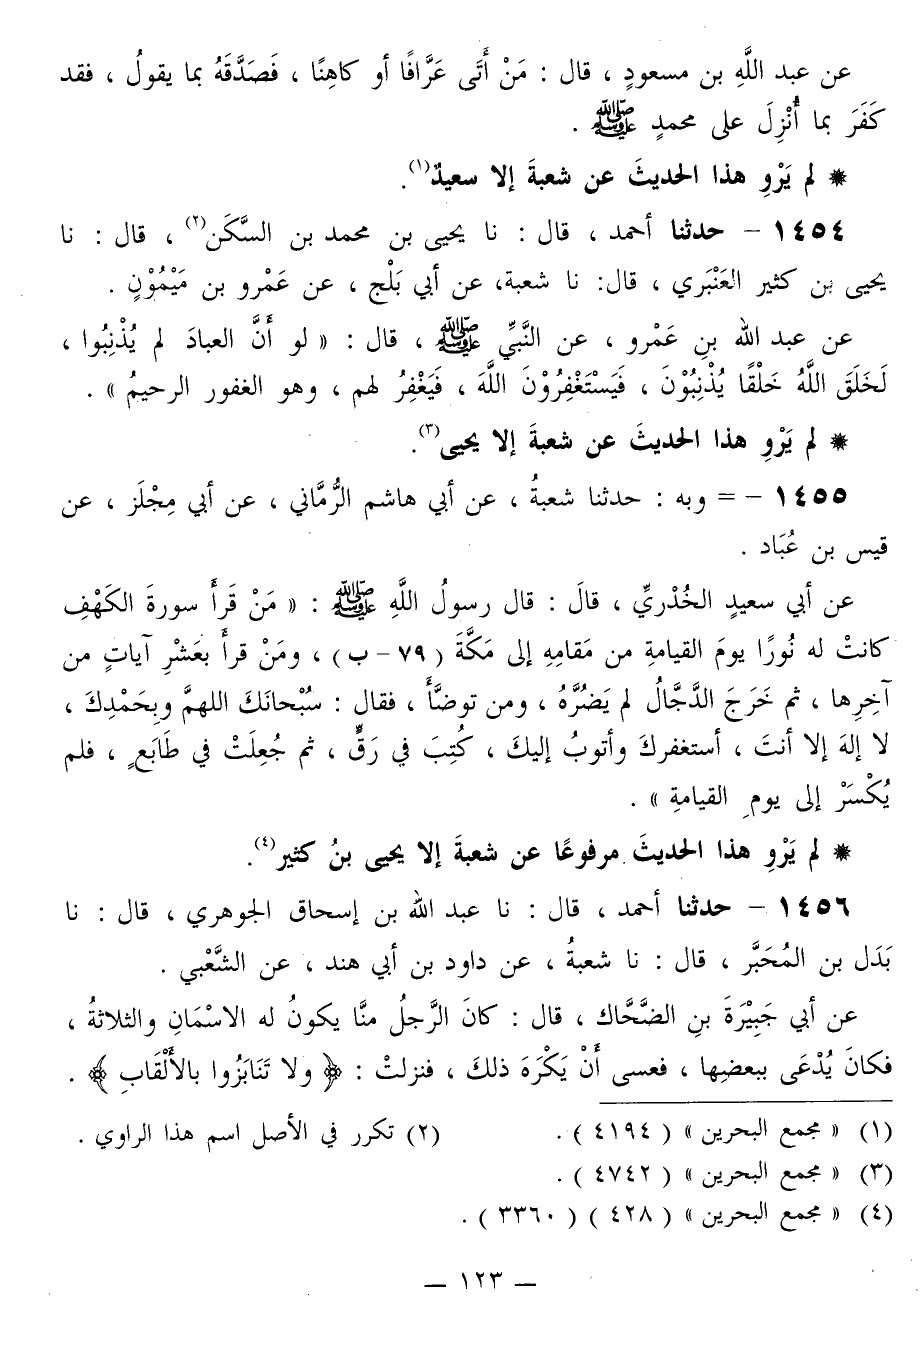 عن عبد اللَّهِ بن مسعودٍ ، قال : مَنْ أَتَى عَرَّافًا أو كاهِنًا ، فَصَدَّقَهُ بما يقولُ ، فقد
كَفَرَ بما أُنْزِلَ على محمدٍ ﷺ .
* لم يَرْوِ هذا الحديثَ عن شعبةَ إلا سعيدٌ(١).
١٤٥٤ – حدثنا أحمد ، قال : نا يحيى بن محمد بن السَّكَن(٢) ، قال : نا
يحيى بن كثير العَنْبَري ، قال: نا شعبة، عن أبي بَلْج ، عن عَمْرو بن مَيْمُوْنٍ .
عن عبد الله بنِ عَمْرو ، عن النَّبيِّ ﷺ ، قال : « لو أَنَّ العبادَ لم يُذْنِبُوا ،
لَخَلَقَ اللَّهُ خَلْقًا يُذْنِبُوْنَ ، فَيَسْتَغْفِرُوْنَ اللَّهَ ، فَيَغْفِرُ لهم ، وهو الغفور الرحيمُ » .
* لم يَرْوِ هذا الحديثَ عن شعبةَ إلا يحيى(٣).
١٤٥٥ – = وبه : حدثنا شعبةُ ، عن أبي هاشم الرُّمَّاني ، عن أبي مِجْلَز ، عن
قيس بن عُبَاد .
عن أبي سعيدٍ الخُدْريِّ ، قالَ : قال رسولُ اللَّهِ ﷺ : « مَنْ قَرأَ سورةَ الكَهْفِ
كانتْ له نُورًا يومَ القيامةِ من مَقامِهِ إلى مَكَّةَ ( ٧٩ – ب ) ، ومَنْ قرأَ بعَشْرِ آياتٍ من
آخِرِها ، ثم خَرَجَ الدَّجَّالُ لم يَضُرَّهُ ، ومن توضَّأَ ، فقال : سُبْحانَكَ اللهمَّ وبحَمْدِكَ ،
لا إلهَ إلا أنتَ ، أستغفركَ وأتوبُ إليكَ ، كُتِبَ في رَقٍّ ، ثم جُعِلَتْ في طَابَعٍ ، فلم
يُكْسَرْ إلى يومِ القيامةِ » .
* لم يَرْوِ هذا الحديثَ مرفوعًا عن شعبةَ إلا يحيى بنُ كثير(٤).
١٤٥٦ – حدثنا أحمد ، قال : نا عبد الله بن إسحاق الجوهري ، قال : نا
بَدَل بن المُحَبَّر ، قال : نا شعبةُ ، عن داود بن أبي هند ، عن الشَّعْبي .
عن أبي جَبِيْرَةَ بنِ الضَّحَّاك ، قال : كانَ الرَّجلُ منَّا يكونُ له الاسْمَانِ والثلاثةُ ،
فكانَ يُدْعَى ببعضِها ، فعسى أَنْ يَكْرَهَ ذلك ، فنزلتْ : ﴿ ولا تَنَابَزُوا بالأَلْقَابِ ﴾ .
(١) « مجمع البحرين » ( ٤١٩٤ ) . (٢) تكرر في الأصل اسم هذا الراوي .
(٣) « مجمع البحرين » ( ٤٧٤٢ ) .
(٤) « مجمع البحرين » ( ٤٢٨ ) ( ٣٣٦٠ ) .
– ١٢٣ –